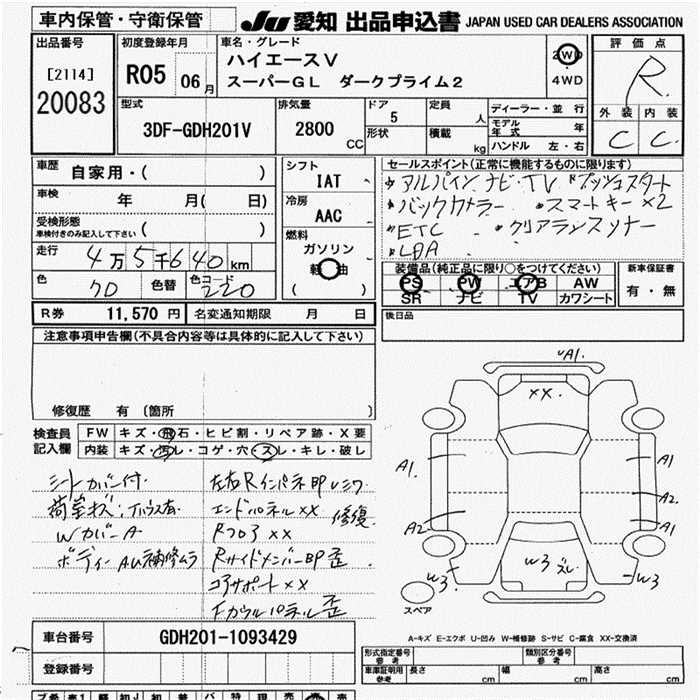 車内保管・守衛保管
JU 愛知 出品申込書 JAPAN USED CAR DEALERS ASSOCIATION
出品番号
[2114]
20083
初度登録年月
R05 06月
車名・グレード
ハイエースV
スーパーGL ダークプライム2
2WD
4WD
評価点
R
外装 内装
C C
型式
3DF-GDH201V
排気量
2800 CC
ドア 5
形状
定員 人
積載 kg
ディーラー・並行
モデル年式 年
ハンドル 左・右
車歴 自家用・( )
車検 年 月( 日)
受検形態
車検付きのみ記入して下さい ( )
走行 4万5千640km
色 70 色替 色コード 220
シフト
IAT
冷房
AAC
燃料
ガソリン
軽油
( )
セールスポイント(正常に機能するものに限ります)
アルパインナビ・TV プッシュスタート
バックカメラー ・スマートキー×2
ETC ・クリアランスソナー
LDA
装備品(純正品に限り○をつけてください)
PS PW エアB AW
SR ナビ TV カワシート
新車保証書
有・無
R券 11,570円 名変通知期限 月 日
後日品
注意事項申告欄(不具合内容等は具体的に記入して下さい)
修復歴 有(箇所 )
検査員記入欄
FW キズ・飛石・ヒビ割・リペア跡・X要
内装 キズ・汚レ・コゲ・穴・スレ・キレ・破レ
シートカバー付
荷室キズ
Wカバー A
ボディー AU補修ムラ
左右Rインパネ
エンドパネル××修復
Rフロア××
Rサイドメンバー 歪
コアサポート××
Fカウルパネル歪
A1
××
A1
A1
A2
A2
A1
W3 スレ
W3
W3
スペア
A-キズ E-エクボ U-凹み W-補修跡 S-サビ C-腐食 XX-交換済
車台番号 GDH201-1093429
登録番号
形式指定番号 参考
類別区分番号 参考
車庫証明用 参考 長さ cm 幅 cm 高さ cm